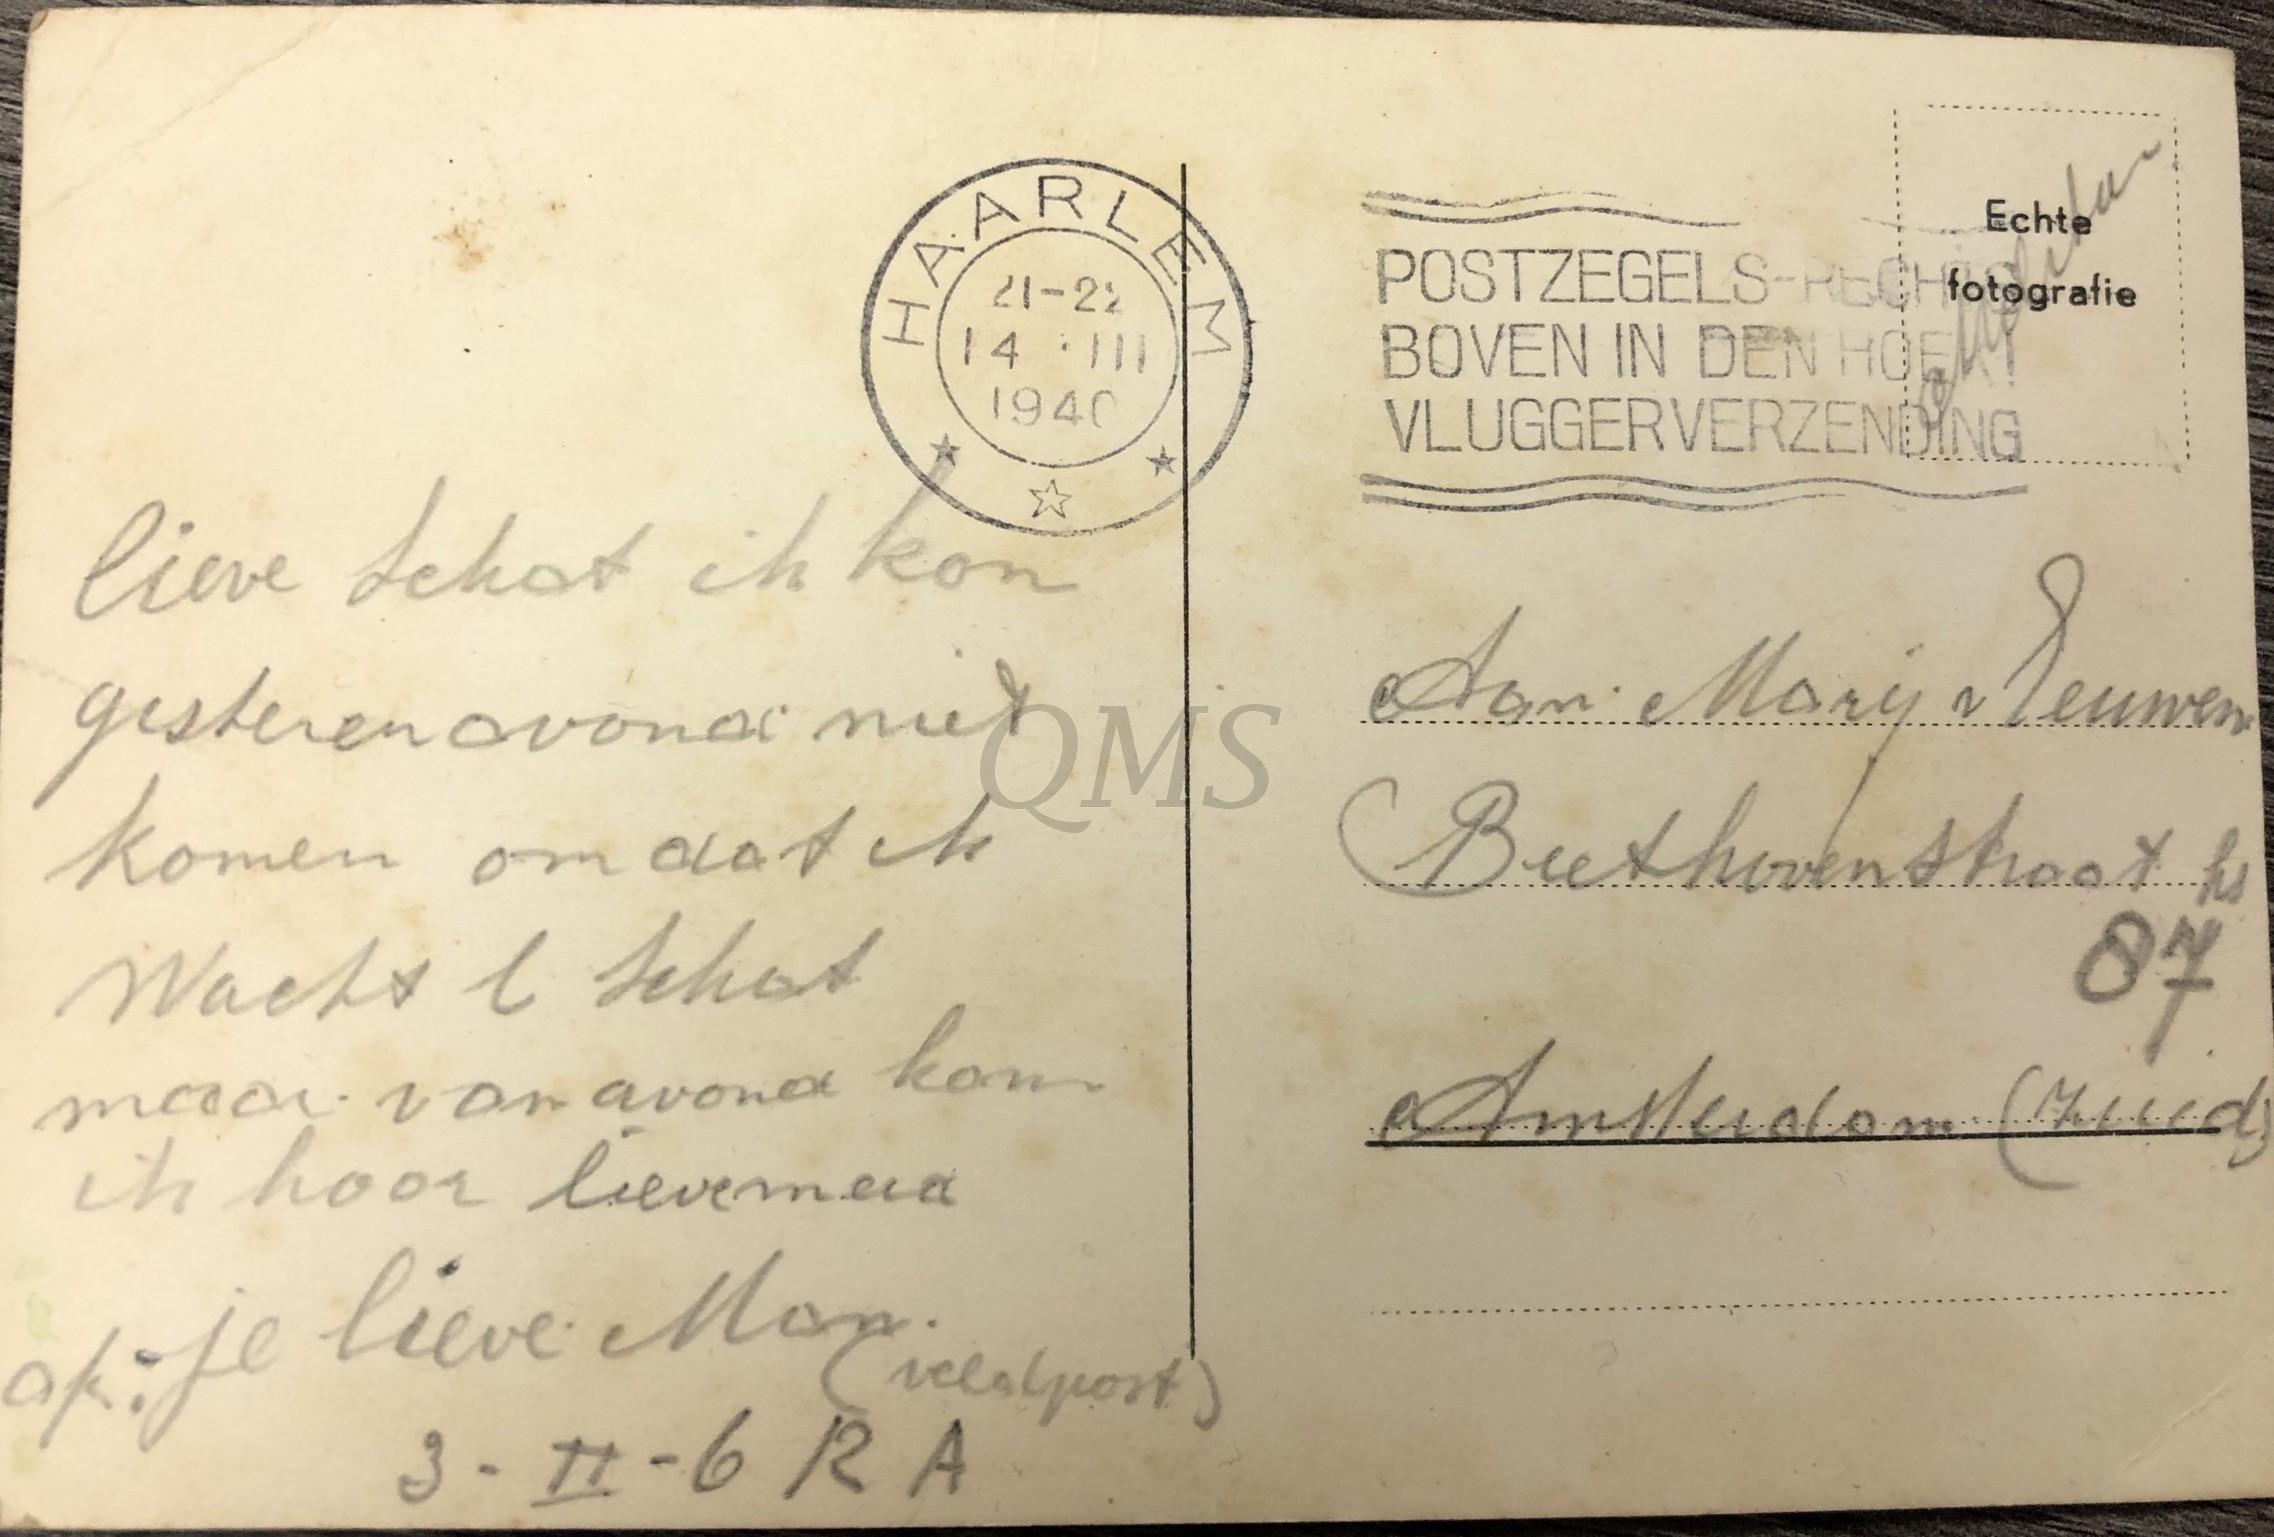 HAARLEM
21-22
14 III
1940
POSTZEGELS-RECHTS
BOVEN IN DEN HOEK!
VLUGGER VERZENDING
Echte
fotografie
lieve schat ik kon
gisterenavond niet
komen omdat ik
Wacht schat
maar vanavond kom
ik hoor lievemeid
je lieve Man.
(veldpost)
3-II-6 R A
Aan Marij v
Beethovenstraat hs
87
Amsterdam (Zuid)
QMS